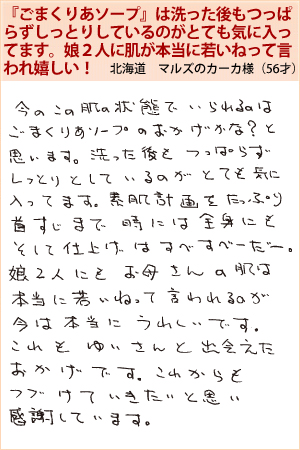 『ごまくりあソープ』は洗った後もつっぱ
らずしっとりしているのがとても気に入っ
てます。娘２人に肌が本当に若いねって言
われ嬉しい！　北海道　マルズのカーカ様（56才）
今のこの肌の状態でいられるのは
ごまくりあソープのおかげかな？と
思います。洗った後もつっぱらず
しっとりとしているのがとても気に
入ってます。素肌計画をたっぷり
首すじまで時には全身にも
そして仕上げはすべすべーだー。
娘２人にもお母さんの肌は
本当に若いねって言われるのが
今は本当にうれしいです。
これもゆいさんと出会えた
おかげです。これからも
つづけていきたいと思い
感謝しています。